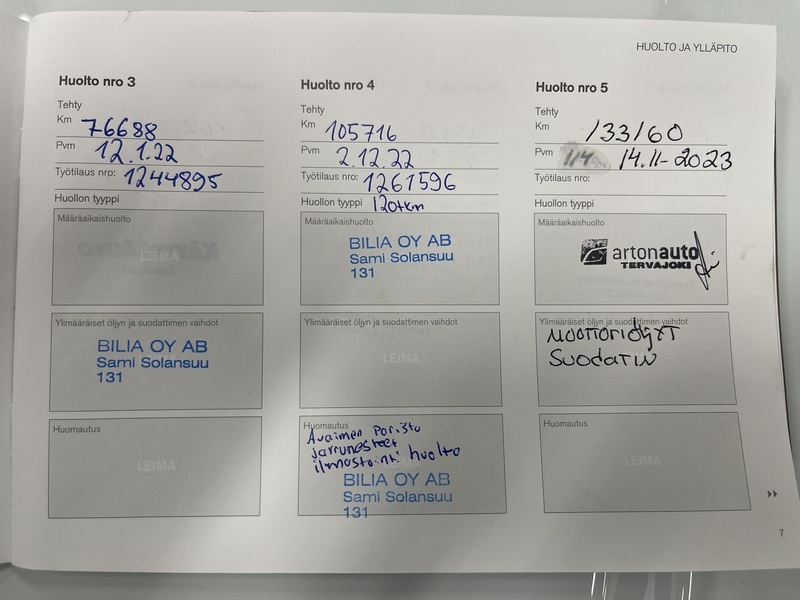 HUOLTO JA YLLÄPITO
Huolto nro 3
Tehty
Km 76688
Pvm 12.1.22
Työtilaus nro: 1244895
Huollon tyyppi
Määräaikaishuolto
LEIMA
Ylimääräiset öljyn ja suodattimen vaihdot
BILIA OY AB
Sami Solansuu
131
Huomautus
LEIMA
Huolto nro 4
Tehty
Km 105716
Pvm 2.12.22
Työtilaus nro: 1261596
Huollon tyyppi 120tkm
Määräaikaishuolto
BILIA OY AB
Sami Solansuu
131
Ylimääräiset öljyn ja suodattimen vaihdot
LEIMA
Huomautus
Avaimen paristo
jarrunesteet
ilmastointi huolto
BILIA OY AB
Sami Solansuu
131
Huolto nro 5
Tehty
Km 133160
Pvm 14.11-2023
Työtilaus nro:
Huollon tyyppi
Määräaikaishuolto
artonauto
TERVAJOKI
Ylimääräiset öljyn ja suodattimen vaihdot
MOOTTORIÖLJYT
SUODATIN
LEIMA
Huomautus
LEIMA
7